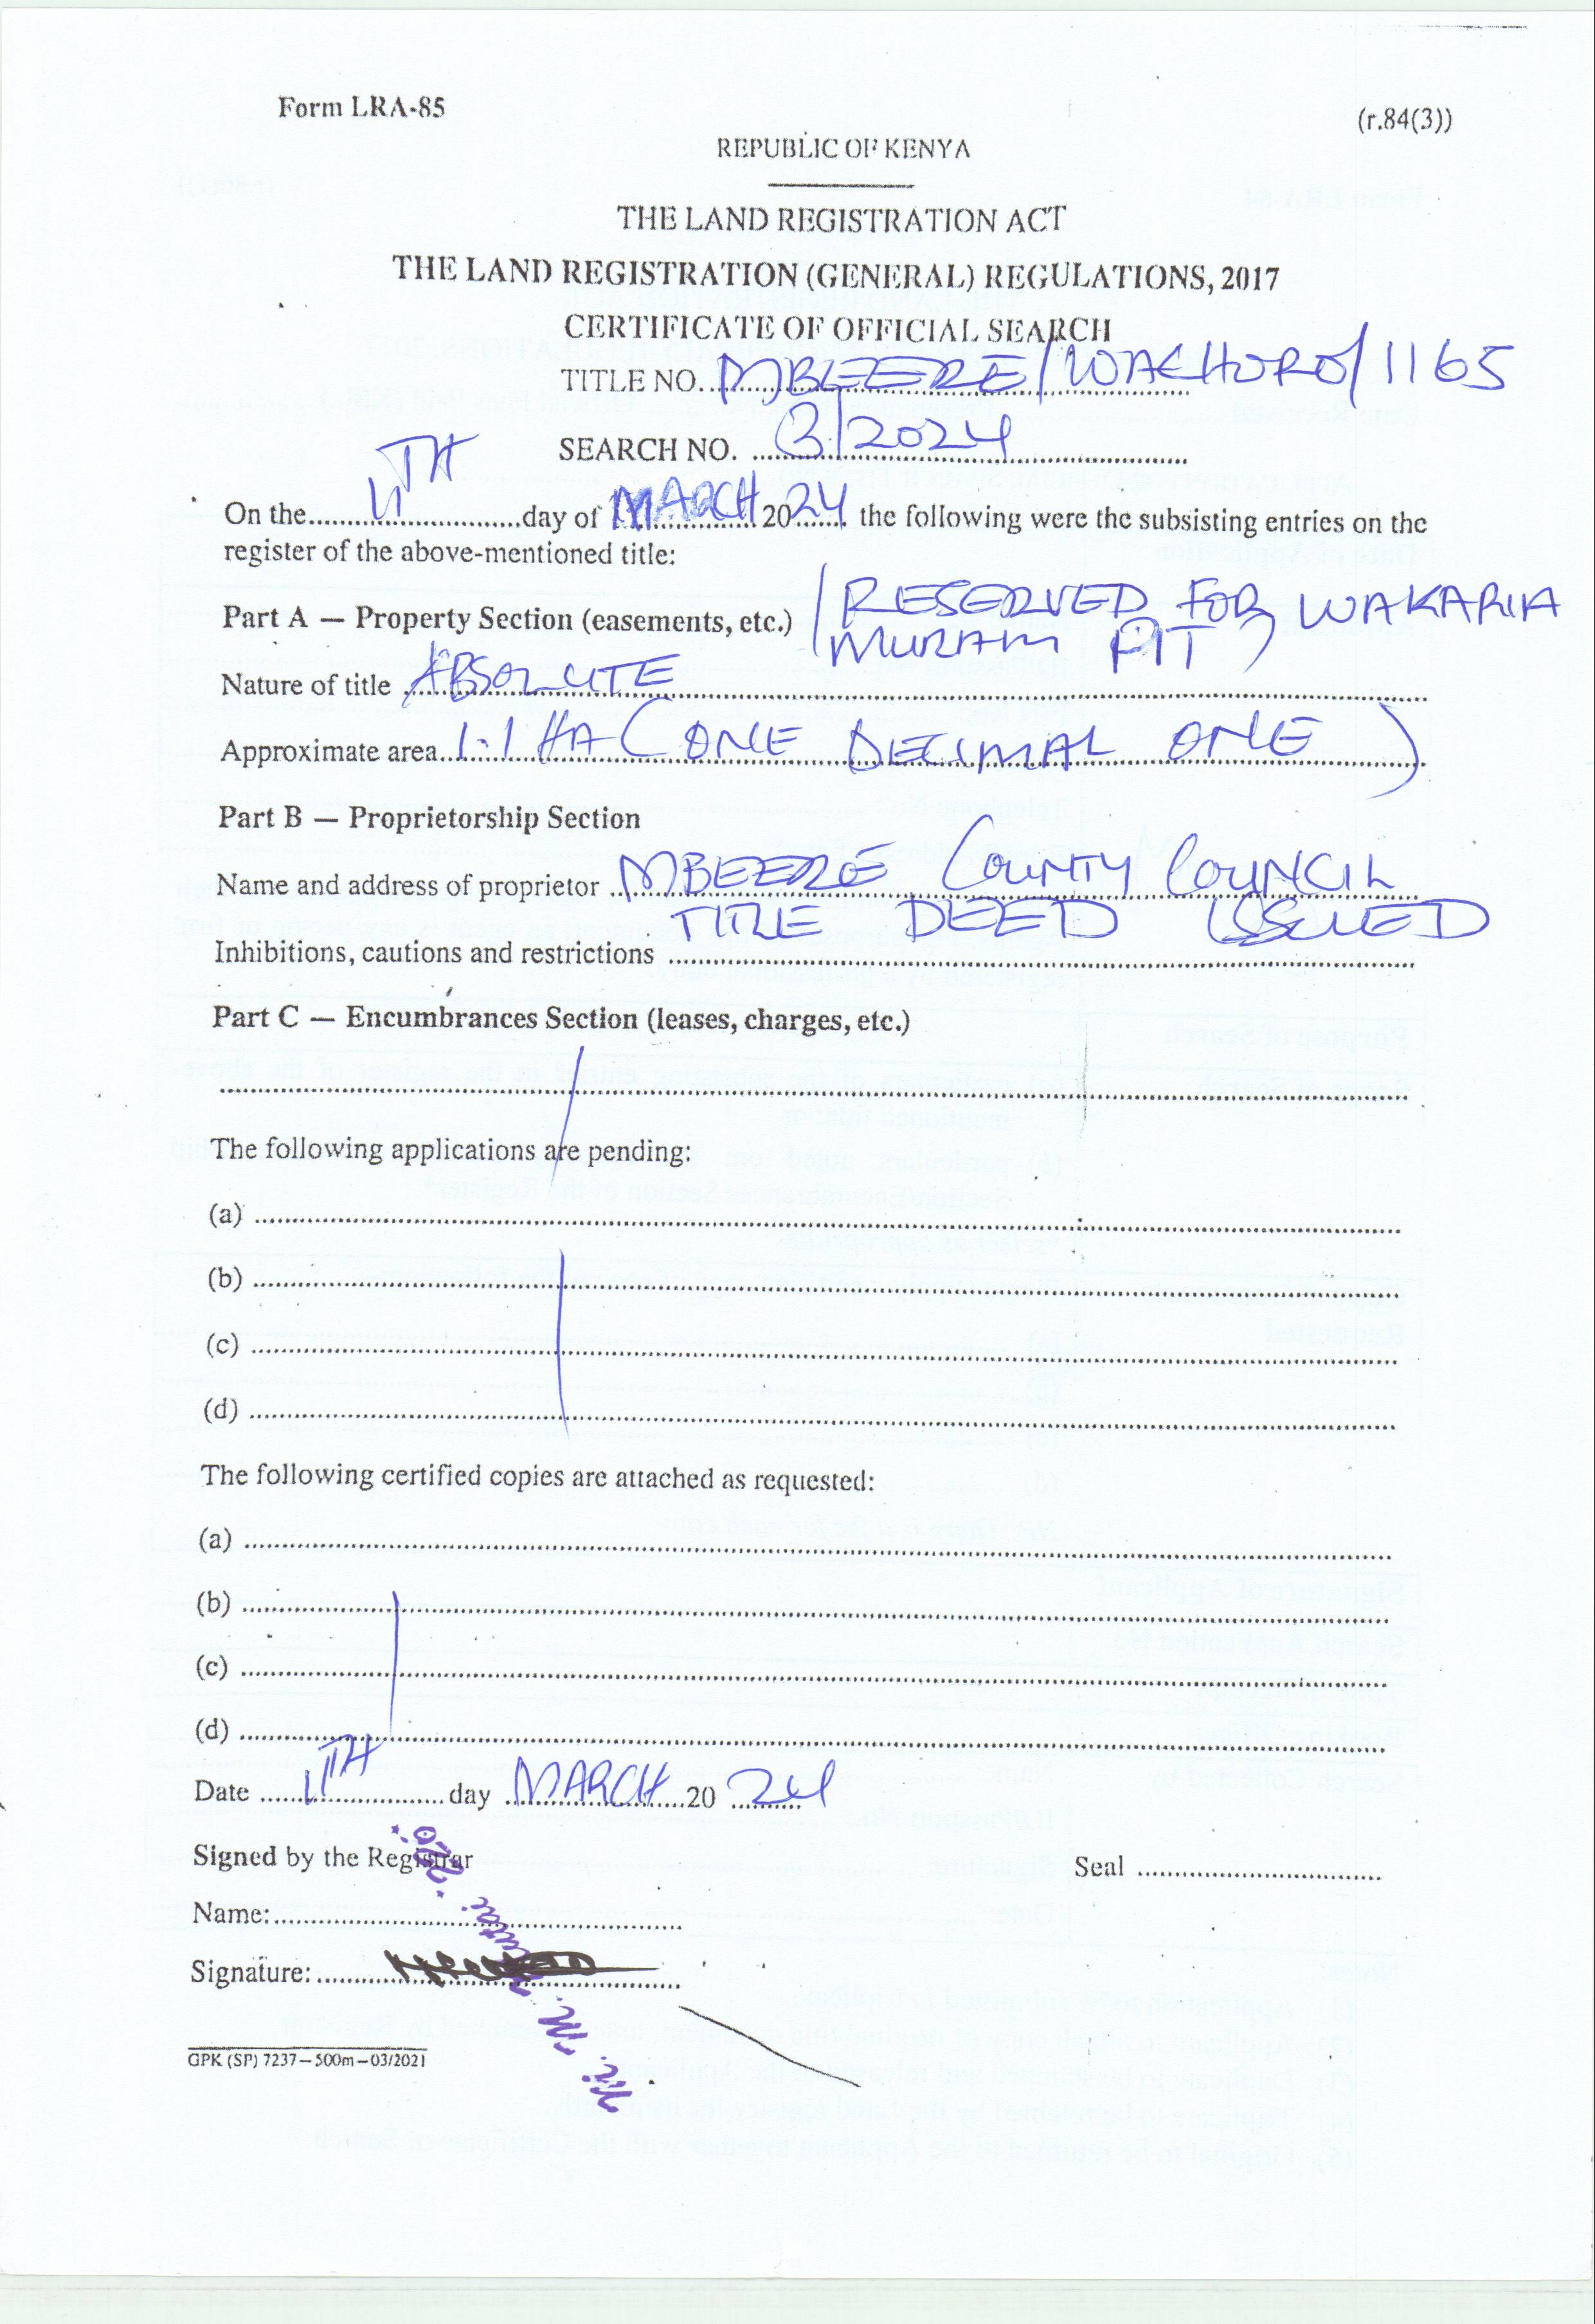 Form LRA-85
(r.84(3))
REPUBLIC OF KENYA
THE LAND REGISTRATION ACT
THE LAND REGISTRATION (GENERAL) REGULATIONS, 2017
CERTIFICATE OF OFFICIAL SEARCH
TITLE NO. MBEERE/WACHORO/1165
SEARCH NO. 3/2024
On the 11TH day of MARCH 2024 the following were the subsisting entries on the
register of the above-mentioned title:
Part A — Property Section (easements, etc.) RESERVED FOR WAKARIA
MURAM PIT
Nature of title ABSOLUTE
Approximate area 1.1 HA (ONE DECIMAL ONE)
Part B — Proprietorship Section
Name and address of proprietor MBEERE COUNTY COUNCIL
TITLE DEED ISSUED
Inhibitions, cautions and restrictions
Part C — Encumbrances Section (leases, charges, etc.)
The following applications are pending:
(a)
(b)
(c)
(d)
The following certified copies are attached as requested:
(a)
(b)
(c)
(d)
Date 11TH day MARCH 2024
Signed by the Registrar
Seal
Name:
Signature:
GPK (SP) 7237—500m—03/2021